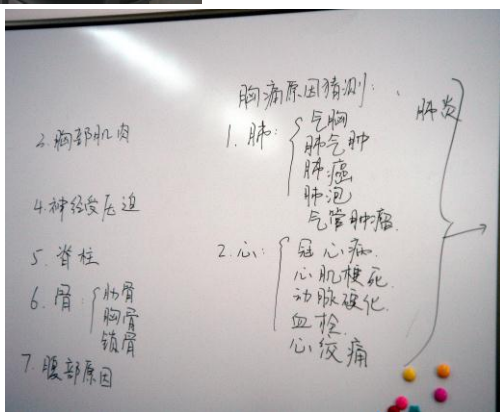 胸痛原因猜测:
1. 肺: 气胸
肺气肿
肺癌
肺泡
气管肿瘤.
肺炎
2. 心: 冠心病.
心肌梗死
动脉硬化.
血栓.
心绞痛
3. 胸部肌肉
4. 神经受压迫
5. 脊柱
6. 骨: 肋骨
胸骨
锁骨
7. 腹部原因